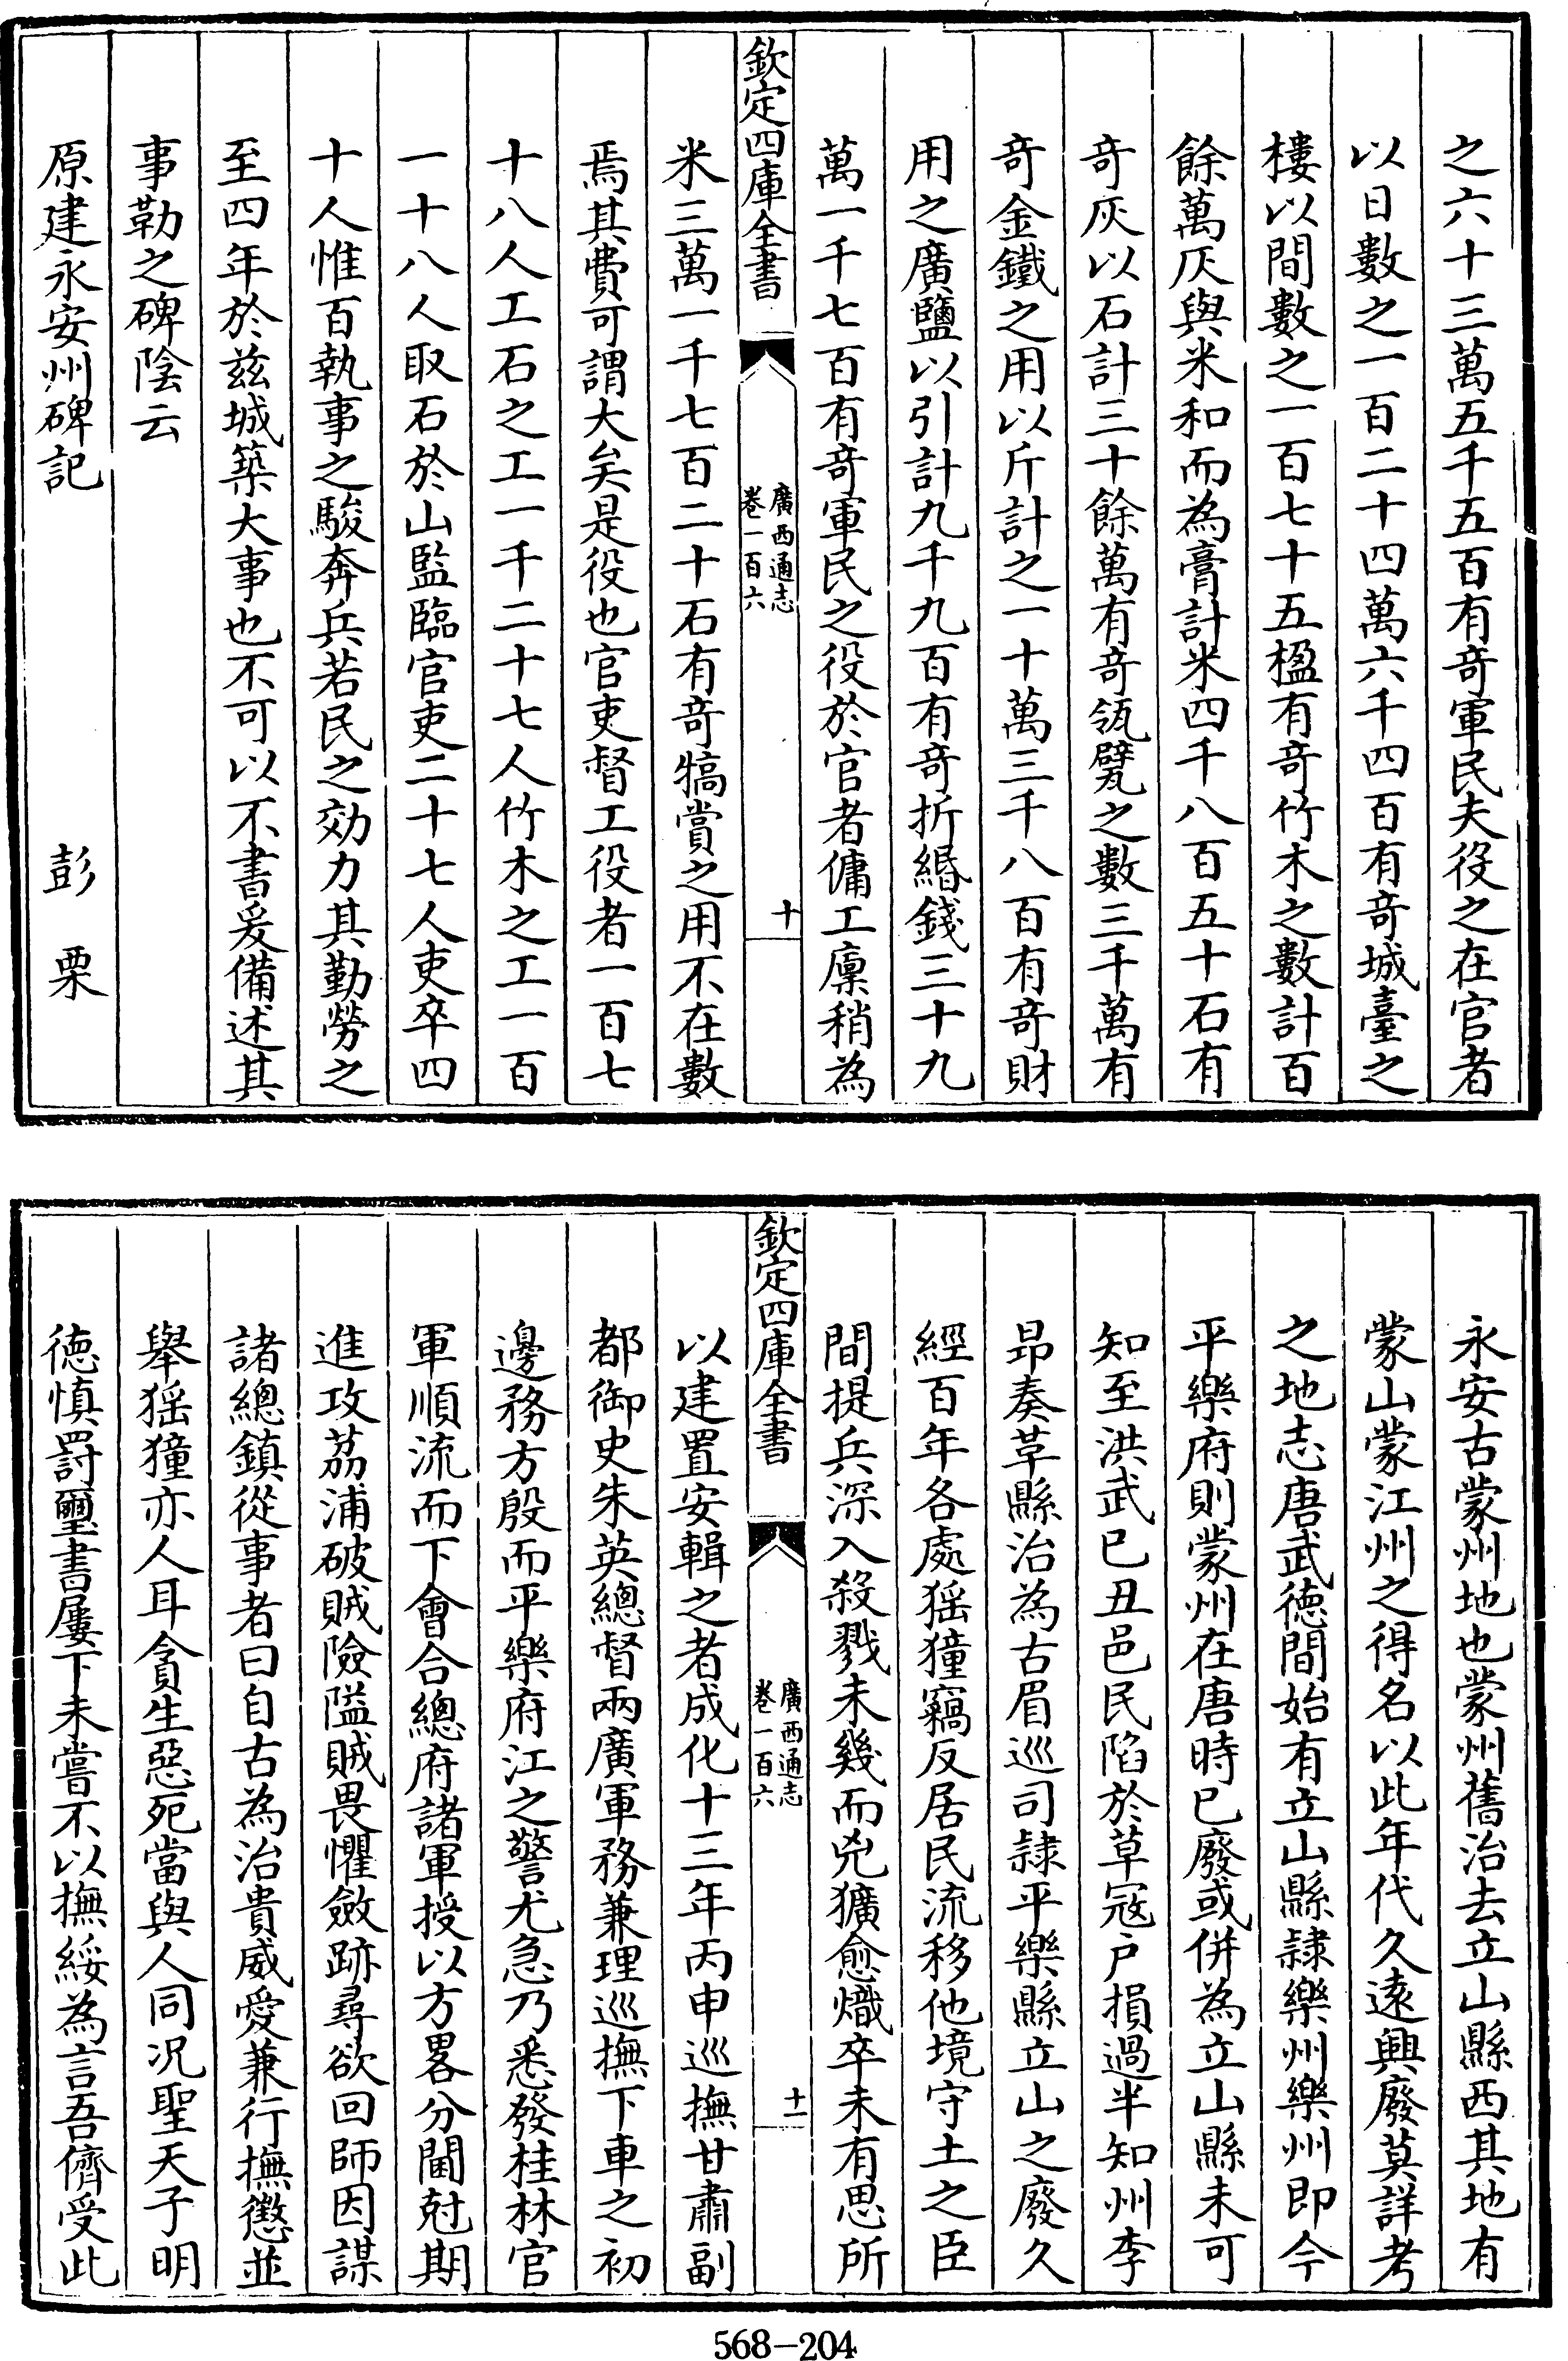 之六十三萬五千五百有奇軍民夫役之在官者
以日數之一百二十四萬六千四百有奇城臺之
樓以間數之一百七十五楹有奇竹木之數計百
餘萬灰與米和而為膏計米四千八百五十石有
奇灰以石計三十餘萬有奇瓴甓之數三千萬有
奇金鐵之用以斤計之一十萬三千八百有奇財
用之廣鹽以引計九千九百有奇折緡錢三十九
萬一千七百有奇軍民之役於官者傭工廩稍為
欽定四庫全書
廣西通志
卷一百六
十
米三萬一千七百二十石有奇犒賞之用不在數
焉其費可謂大矣是役也官吏督工役者一百七
十八人工石之工一千二十七人竹木之工一百
一十八人取石於山監臨官吏二十七人吏卒四
十人惟百執事之駿奔兵若民之効力其勤勞之
至四年於兹城築大事也不可以不書爰備述其
事勒之碑陰云
原建永安州碑記 彭栗
永安古蒙州地也蒙州舊治去立山縣西其地有
蒙山蒙江州之得名以此年代久遠興廢莫詳考
之地志唐武徳間始有立山縣隷樂州樂州即今
平樂府則蒙州在唐時已廢或併為立山縣未可
知至洪武已丑邑民陷於草冦户損過半知州李
昻奏革縣治為古眉巡司隷平樂縣立山之廢久
經百年各處猺獞竊反居民流移他境守土之臣
間提兵深入殺戮未幾而兇獷愈熾卒未有思所
欽定四庫全書
廣西通志
卷一百六
十一
以建置安輯之者成化十三年丙申巡撫甘肅副
都御史朱英總督兩廣軍務兼理巡撫下車之初
邊務方殷而平樂府江之警尤急乃悉發桂林官
軍順流而下會合總府諸軍授以方畧分閫尅期
進攻荔浦破賊險隘賊畏懼斂跡尋欲回師因謀
諸總鎮從事者曰自古為治貴威愛兼行撫懲並
舉猺獞亦人耳貪生惡死當與人同况聖天子明
徳慎罰璽書屢下未嘗不以撫綏為言吾儕受此
568-204